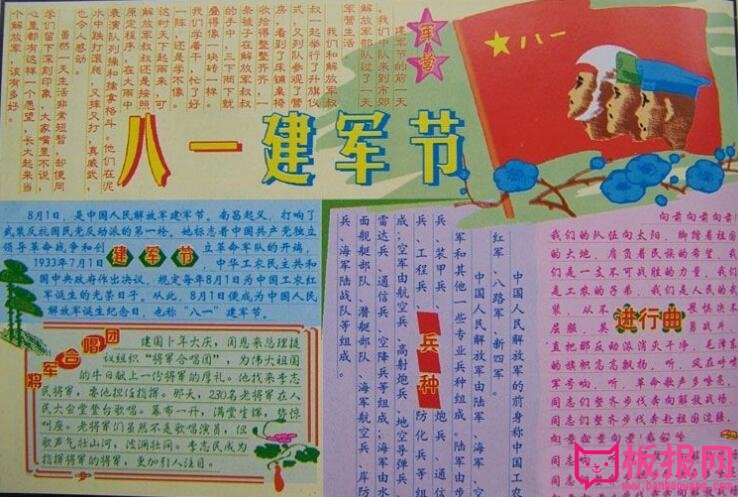 军营
建军节的前一天
我们中队来到市郊
解放军部队过了一天
军营生活
我们和解放军叔
叔一起举行了升旗仪
式，又列队参观了营
房，看到了床铺桌椅
收拾得整整齐齐，一
条被子在解放军叔叔
的手中，三下两下就
叠得像一块砖一样。
我们学着干，忙了好
一阵，还是学不像。
这时天下起雨来，可
解放军叔叔还是按照
原定程序，在大雨中
表演队列操和擒拿格斗。他们在泥
水中跌打滚爬，又摔又打，真威武，
也令人感动。
虽然一天生活非常短暂，却使同
学们留下深刻印象，大家嘴里不说，
心里都有这样一个愿望，长大起来当
个解放军，该有多好。
八一
八一建军节
8月1日，是中国人民解放军建军节。南昌起义，打响了
武装反抗国民党反动派的第一枪。她标志着中国共产党独立
领导革命战争和创立革命军队的开端，
建军节
1933年7月1日，中华工农民主共和
国中央政府作出决议，规定每年8月1日为中国工农红
军诞生的光荣日子。从此，8月1日便成为中国人民
解放军诞生纪念日，也称“八一”建军节。
将军合唱团
建国十年大庆，周恩来总理提
议组织“将军合唱团”，为伟大祖国
的生日献上一份将军的厚礼。他找来李志
民将军，委他担任指挥。那天，230名老将军在人
民大会堂登台歌唱。幕布一开，满堂生辉，惊
叫座。老将军们虽然不是歌唱演员，但
歌声气壮山河，波澜壮阔。李志民成为
指挥将军的将军，更加引人注目。
兵种
中国人民解放军的前身称中国工农
红军、八路军、新四军。
中国人民解放军由陆军、海军、空
军和其他一些专业兵种组成。陆军由步
兵、装甲兵、炮兵、通信
兵、工程兵、防化兵等组
成；空军由航空兵、高射炮兵、地空导弹兵、
雷达兵、通信兵、空降兵等组成；海军由水
面舰艇部队、潜艇部队、海军航空兵、岸防
兵、海军陆战队等组成。
进行曲
向前向前向前！
我们的队伍向太阳，脚踏着祖国
的大地，肩负着民族的希望，我
们是一支不可战胜的力量，我们
是工农的子弟，我们是人民的武
装，从不畏惧决不
屈服，英勇战斗，
直把那反动派消灭干净，毛泽东
的旗帜高高飘扬，听，风在呼啸
军号响，听，革命歌声多嘹亮，
同志们整齐步伐奔向解放战场，
同志们整齐步伐奔赴祖国边疆，
板报网
www.banbaowang.com